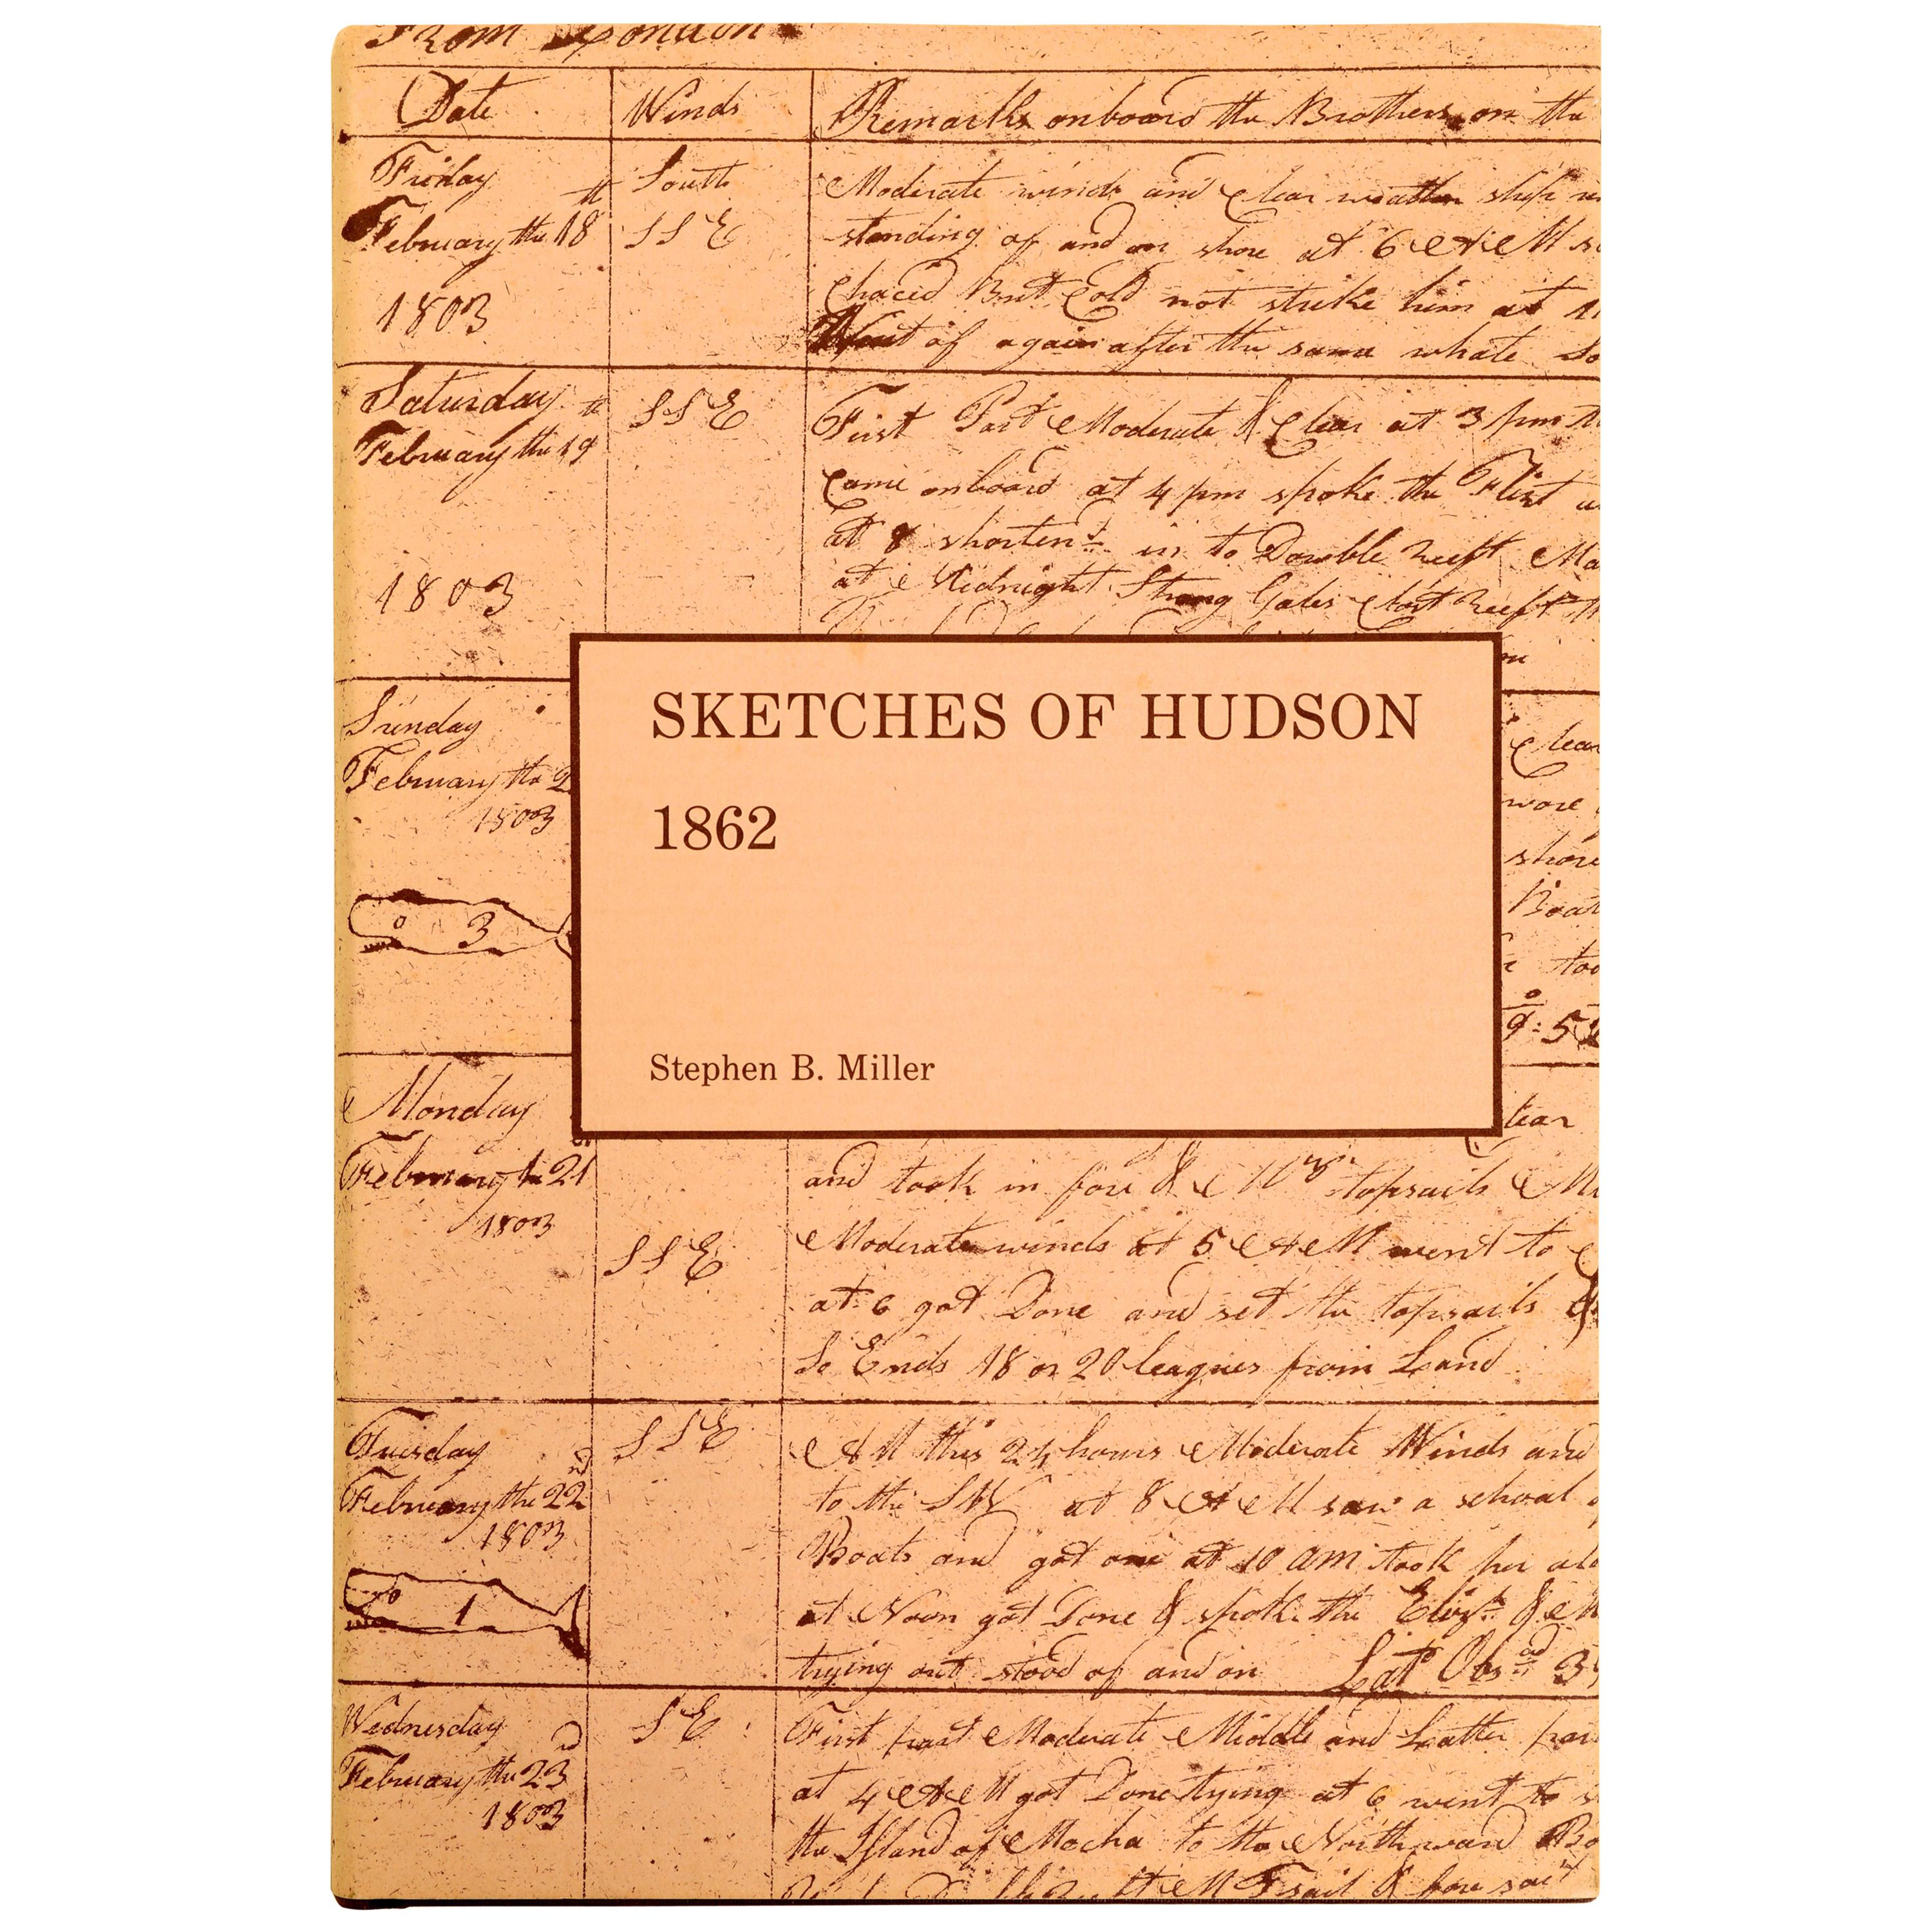 From London
Date
Winds
Remarks onboard the Brothers on the
Friday
February the 18th
1803
South
SSE
Moderate winds and Clear weather ship
standing of and on shore at 6 AM
Chaced But Cold not strike him at
Went of again after the same whale So
Saturday
February the 19th
1803
SSE
First Part Moderate & Clear at 3 pm
Came onboard at 4 pm spoke the Flirt
at 8 shortend in to Double reeft Ma
at Midnight Strong Gales Clost reeft
SKETCHES OF HUDSON
1862
Stephen B. Miller
Sunday
February the 2
1803
3
Clear
wore
shore
Boat
too
9: 5
Monday
February the 21
1803
SSE
lear
and took in fore & Mzn topsails
Moderate winds at 5 AM went to
at 6 got Done and set the topsails
So Ends 18 or 20 leagues from Land
Tuesday
February the 22nd
1803
1
SSE
All this 24 hours Moderate Winds and
to the SW at 8 AM saw a school
Boats and got one at 10 am took her alo
at Noon got Done & spoke the Elizth & M
trying out stood of and on Latd Obsd 3
Wednesday
February the 23d
1803
SE
First part Moderate Middle and Latter par
at 4 AM got Done trying at 6 went to
the Island of Mocha to the Northward
sail & fore sail